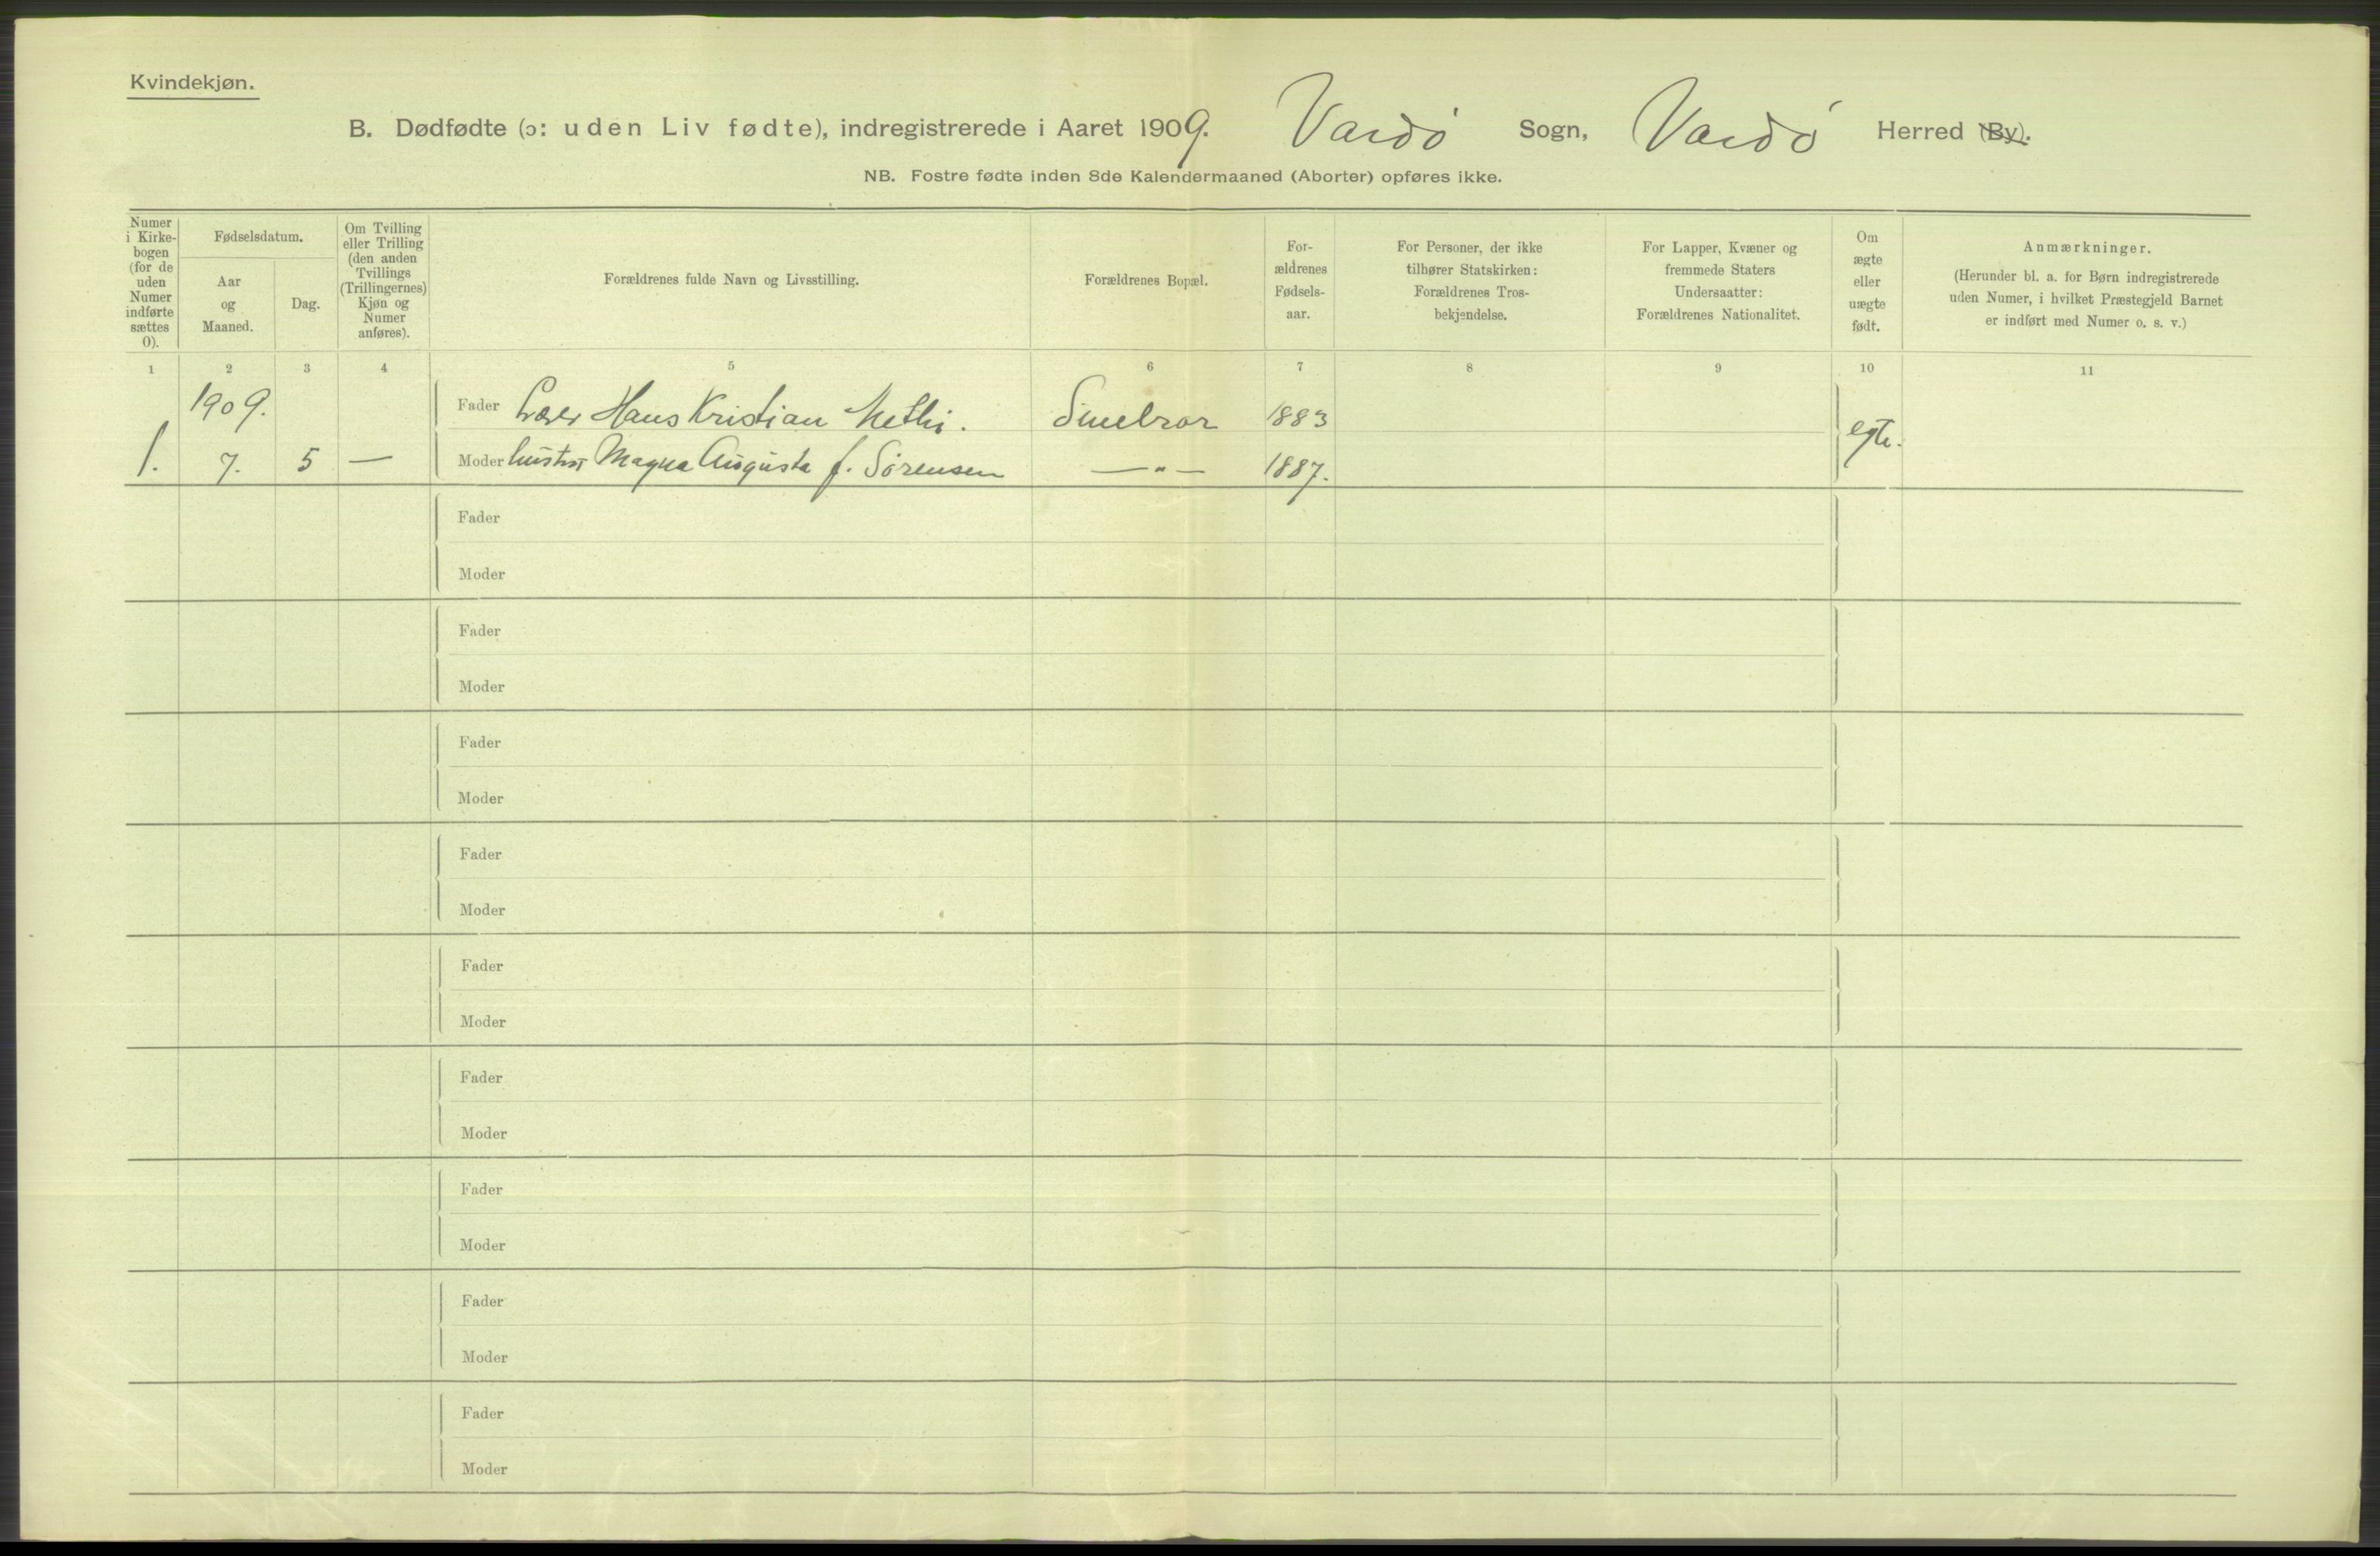 Kvindekjøn.
B. Dødfødte (ɔ: uden Liv fødte), indregistrerede i Aaret 1909. Vardö Sogn, Vardö Herred (By).
NB. Fostre fødte inden 8de Kalendermaaned (Aborter) opføres ikke.
Numer i Kirke-
bogen
(for de
uden
Numer
indførte
sættes
0).
Fødselsdatum.
Aar
og
Maaned.
Dag.
Om Tvilling
eller Trilling
(den anden
Tvillings
(Trillingernes)
Kjøn og
Numer
anføres).
Forældrenes fulde Navn og Livsstilling.
Forældrenes Bopæl.
For-
ældrenes
Fødsels-
aar.
For Personer, der ikke
tilhører Statskirken:
Forældrenes Tros-
bekjendelse.
For Lapper, Kvæner og
fremmede Staters
Undersaatter:
Forældrenes Nationalitet.
Om
ægte
eller
uægte
født.
Anmærkninger.
(Herunder bl. a. for Børn indregistrerede
uden Numer, i hvilket Præstegjeld Barnet
er indført med Numer o. s. v.)
1 2 3 4 5 6 7 8 9 10 11
1909. Fader Hans Kristian 1883
1. 7. 5 — Moder hustru Magna Augusta f. Sörensen —„— 1887. egte.
Fader
Moder
Fader
Moder
Fader
Moder
Fader
Moder
Fader
Moder
Fader
Moder
Fader
Moder
Fader
Moder
Fader
Moder